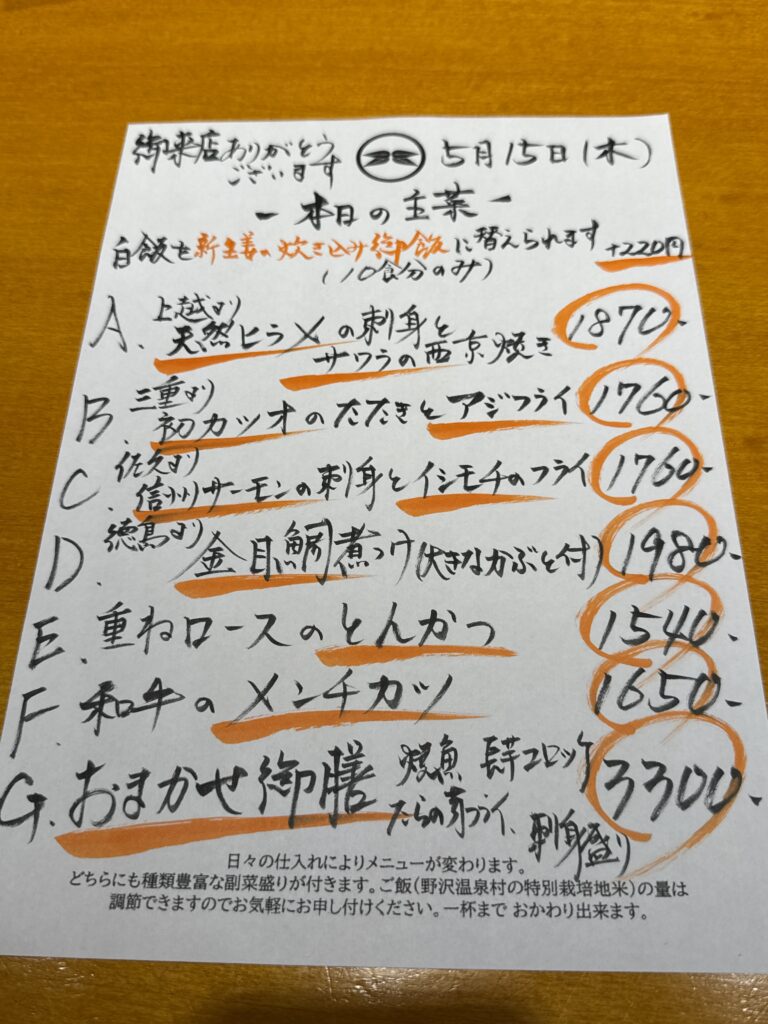 御来店ありがとう
ございます
5月15日(木)
- 本日の主菜 -
白飯を新生姜の炊き込み御飯に替えられます +220円
(10食分のみ)
A. 上越より
天然ヒラメの刺身と
サワラの西京焼き 1870-
B. 三重より
初カツオのたたきとアジフライ 1760-
C. 佐久より
信州サーモンの刺身とイシモチのフライ 1760-
D. 徳島より
金目鯛煮つけ(大きなかぶと付) 1980-
E. 重ねロースのとんかつ 1540-
F. 和牛のメンチカツ 1650-
G. おまかせ御膳 焼魚 長芋コロッケ
たらの芽フライ、刺身盛り 3300-
日々の仕入れによりメニューが変わります。
どちらにも種類豊富な副菜盛りが付きます。ご飯(野沢温泉村の特別栽培地米)の量は
調節できますのでお気軽にお申し付けください。一杯まで おかわり出来ます。